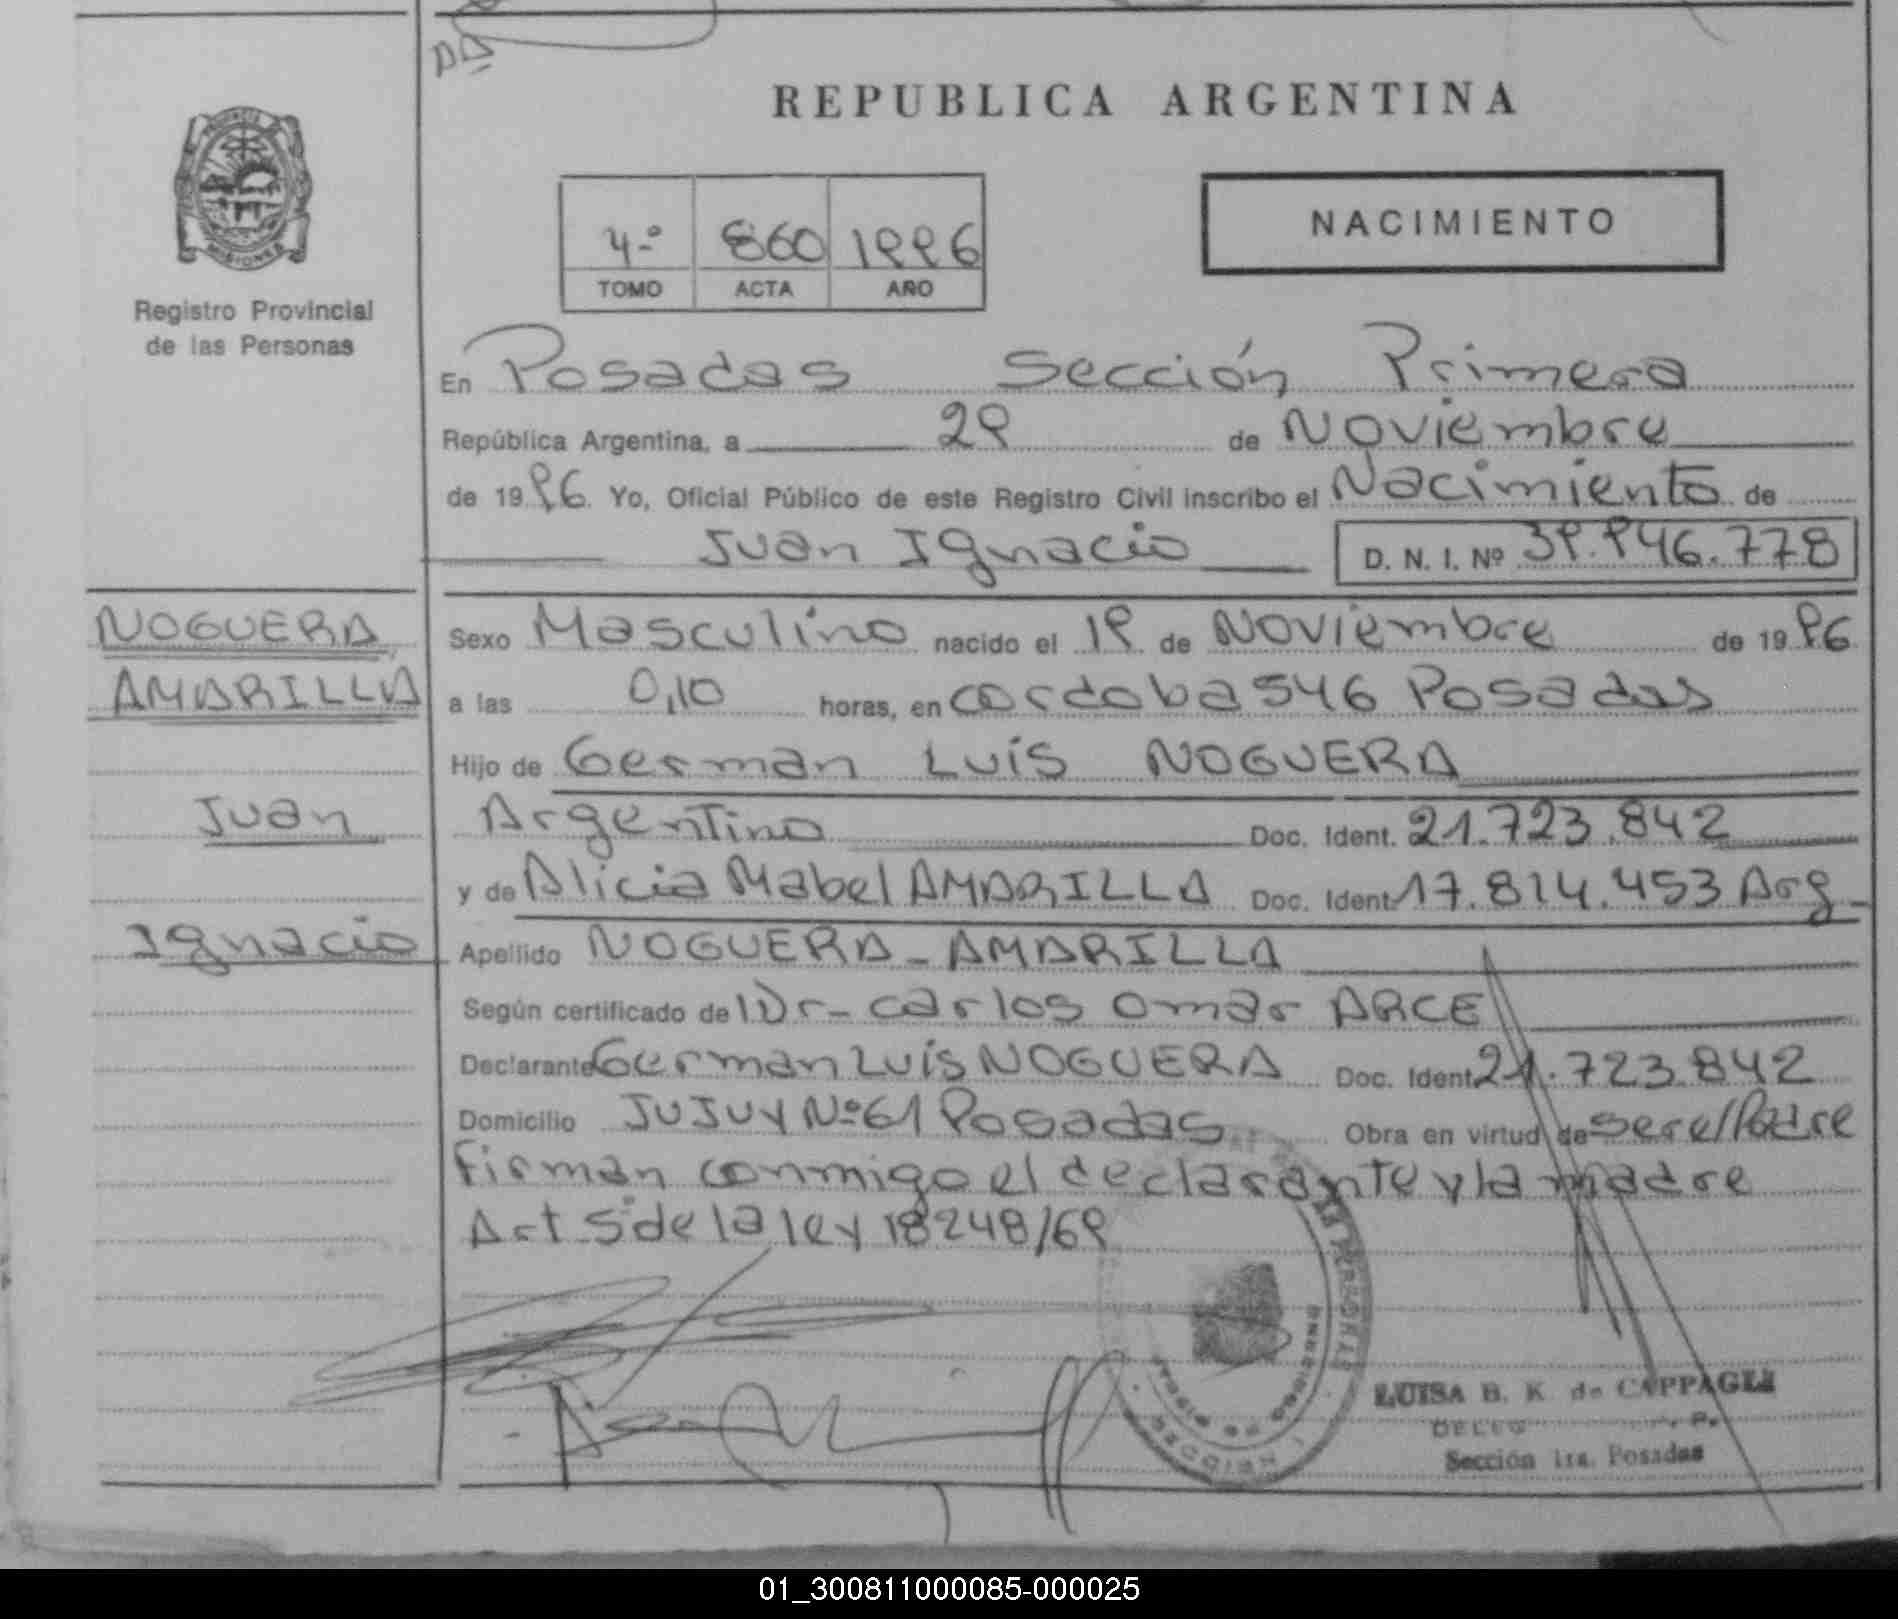 REPUBLICA ARGENTINA
PROVINCIA
MISIONES
Registro Provincial
de las Personas
4º 860 1996
TOMO ACTA AÑO
NACIMIENTO
En Posadas Sección Primera
República Argentina, a 29 de Noviembre
de 1996. Yo, Oficial Público de este Registro Civil inscribo el Nacimiento de
Juan Ignacio D. N. I. Nº 39.946.778
NOGUERA
AMARILLA
Juan
Ignacio
Sexo Masculino nacido el 19 de Noviembre de 1996
a las 0,10 horas, en cordoba 546 Posadas
Hijo de German Luis NOGUERA
Argentino Doc. Ident. 21.723.842
y de Alicia Mabel AMARILLA Doc. Ident. 17.814.453 Arg
Apellido NOGUERA - AMARILLA
Según certificado de Dr- carlos Omar ARCE
Declarante German Luis NOGUERA Doc. Ident. 21.723.842
Domicilio JUJUY Nº 61 Posadas Obra en virtud de ser el Padre
Firman conmigo el declarante y la madre
Art 5º de la ley 18248/69
LUISA B. K. de CAPPAGLI
Sección 1ra. Posadas
01_300811000085-000025